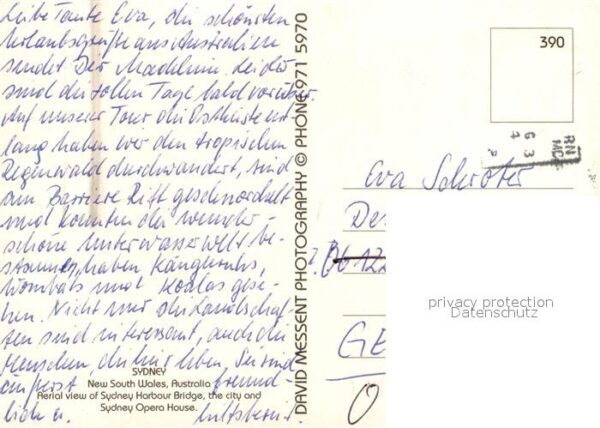 Liebe Tante Eva, die schönsten
Urlaubsgrüße aus Australien
sendet Dir Madelein. Leider
sind die tollen Tage bald vorüber.
Auf unserer Tour die Ostküste ent-
lang haben wir den tropischen
Regenwald durchwandert, sind
am Barriere Riff geschnorchelt
und konnten die wunder-
schöne Unterwasserwelt be-
staunen, haben Känguruhs,
Wombats und Koalas gese-
hen. Nicht nur die Landschaf-
ten sind interessant, auch die
Menschen, die hier leben. Sie sind
äußerst freund-
lich u. hilfsbereit.
SYDNEY
New South Wales, Australia
Aerial view of Sydney Harbour Bridge, the city and
Sydney Opera House.
DAVID MESSENT PHOTOGRAPHY © PHONE 971 5970
390
Eva Schröter
De
06122
GE
privacy protection
Datenschutz